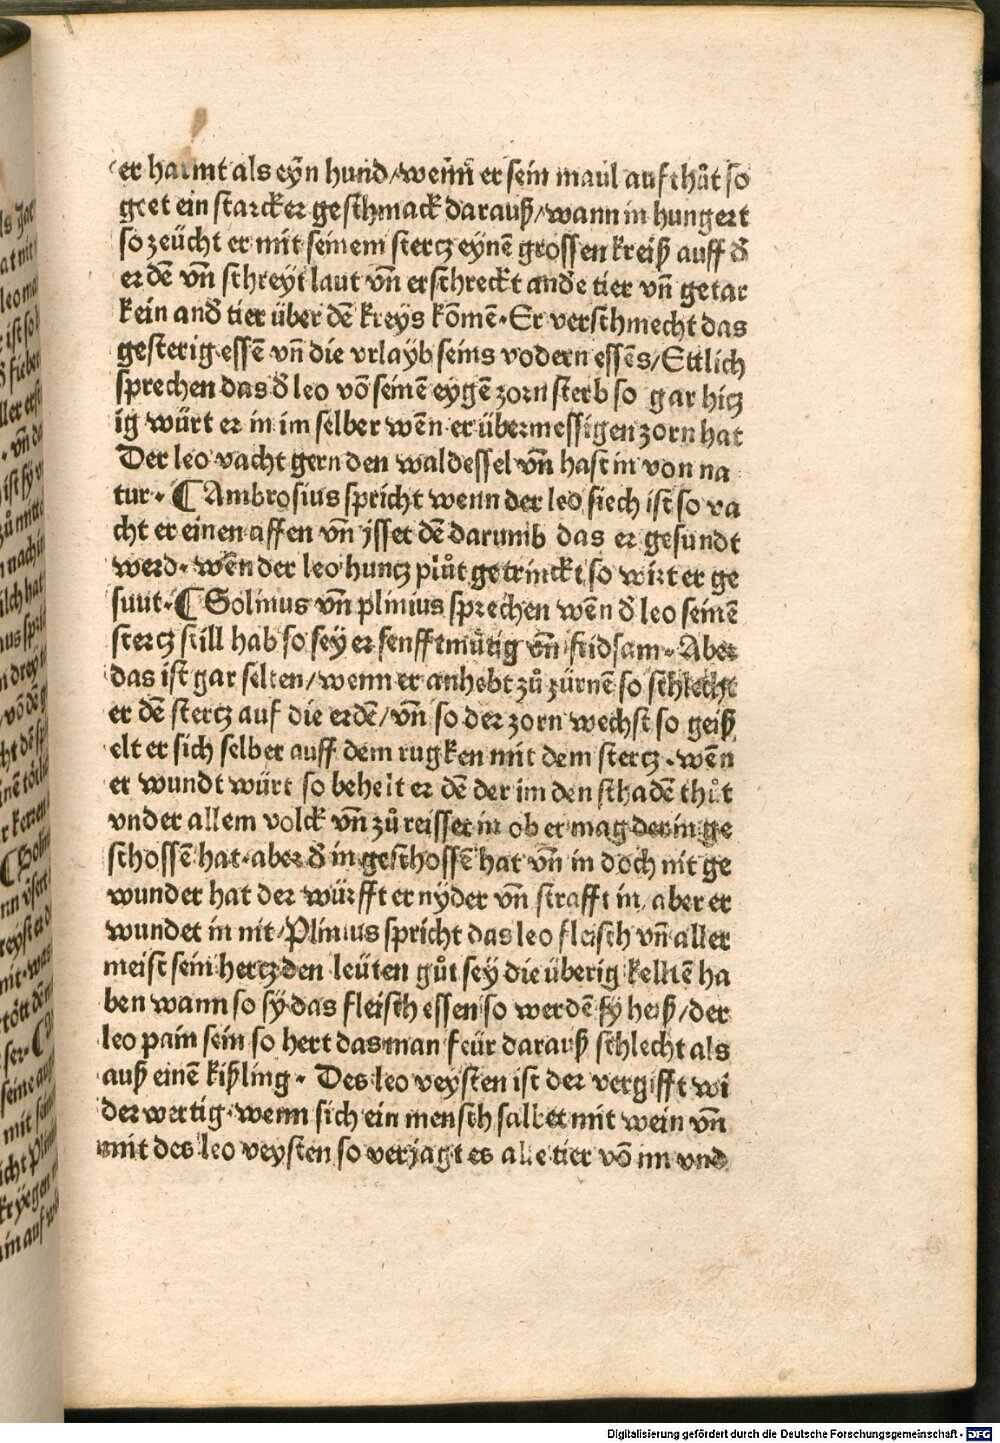 er harmt als eyn hund/weñn er sein maul auf thůt so
geet ein starcker geschmack darauß/wann in hungert
so zeücht er mit seinem stertz eynē grossen kreiß auff d̕
erdē vñ schreyt laut vñ erschreckt and̕e tier vñ getar
kein and̕ tier über dē kreys kōmē. Er verschmecht das
gesterig essē vñ die vrlayb seins vodern essēs/Ettlich
sprechen das d̕ leo vō seinē eygē zorn sterb so gar hitz
ig würt er in im selber wēn er übermessigen zorn hat
Der leo vacht gern den waldessel vñ hast in von na
tur. ¶ Ambrosius spricht wenn der leo siech ist so va
cht er einen affen vñ ysset dē darumb das er gesundt
werd. wēn der leo huntz plůt getrinckt so wirt er ge
sunt. ¶ Solinus vñ plinius sprechen wēn d̕ leo seinē
stertz still hab so sey er senfftmütig vñ fridsam. Aber
das ist gar selten/wenn er anhebt zů zürnē so schlecht
er dē stertz auf die erdē/vñ so der zorn wechst so geiß
elt er sich selber auff dem rugken mit dem stertz. wēn
er wundt würt so behelt er dē der im den schadē thůt
vnder allem volck vñ zůreisset in ob er mag der in ge
schossē hat. aber d̕ in geschossē hat vñ in doch nit ge
wunder hat der würfft er nyder vñ strafft in/aber er
wundet in nit/Plinius spricht das leo fleisch vñ aller
meist sein hertz den leüten gůt sey die überig keltē ha
ben wann so sy das fleisch essen so werdē sy heiß/der
leo pain sein so hert das man feür darauß schlecht als
auß einē kißling. Des leo veysten ist der vergifft wi
der wertig. wenn sich ein mensch salbet mit wein vñ
mit des leo veysten so verjagt es alle tier vō im vnd
Digitalisierung gefördert durch die Deutsche Forschungsgemeinschaft - DFG